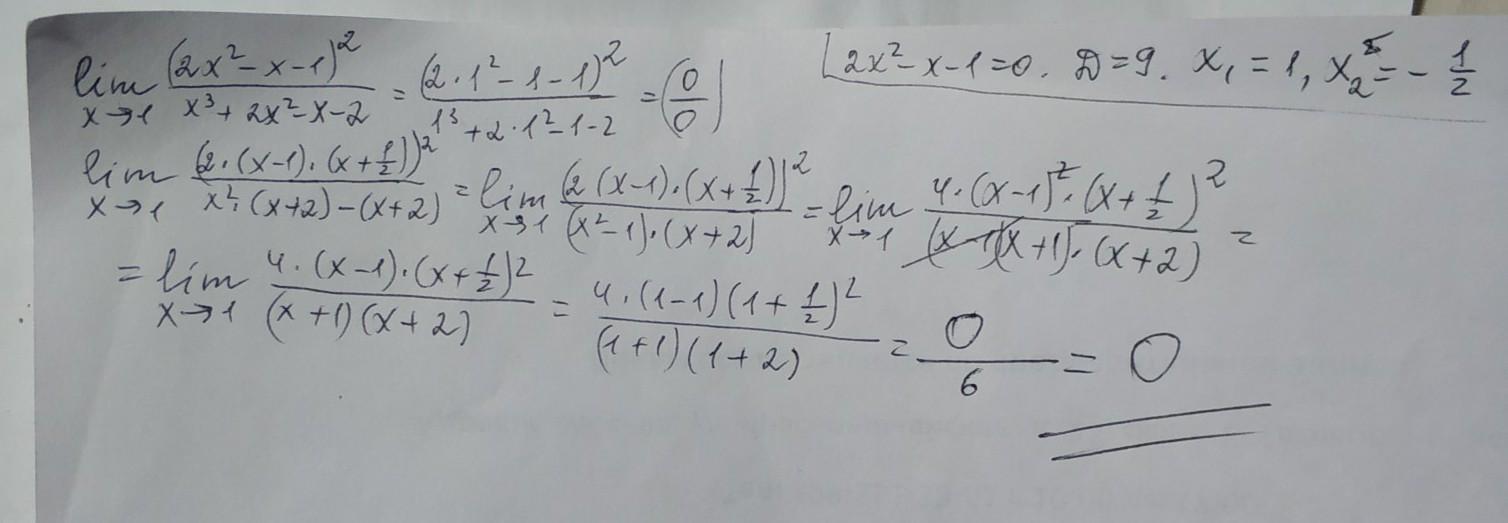 lim x→1 (2x²-x-1)² / (x³+2x²-x-2) = (2·1²-1-1)² / (1³+2·1²-1-2) = (0/0)
2x²-x-1=0. D=9. x₁=1, x₂=-1/2
lim x→1 (2·(x-1)·(x+1/2))² / (x²·(x+2)-(x+2)) = lim x→1 (2(x-1)·(x+1/2))² / ((x²-1)·(x+2)) = lim x→1 4·(x-1)²·(x+1/2)² / ((x-1)(x+1)·(x+2)) =
= lim x→1 4·(x-1)·(x+1/2)² / ((x+1)(x+2)) = 4·(1-1)(1+1/2)² / ((1+1)(1+2)) = 0/6 = 0